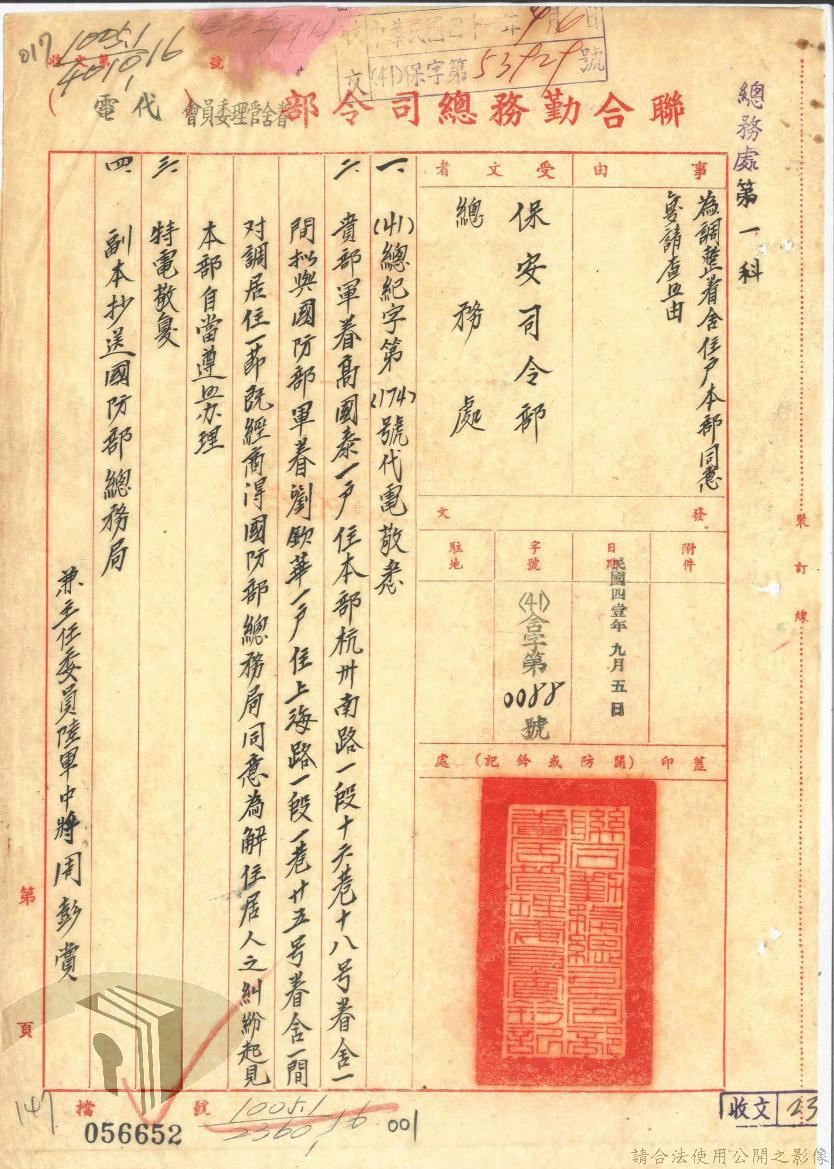 017
10051
401016
1
收文第 號
收文
中華民國四十一年9月6日
(41)保字第53929號
聯合勤務總司令部(眷舍管理委員會)代電
總務處第一科
事由
為調整眷舍住戶本部同意
受文者
保安司令部
總務處
發文
附件
日期
民國四壹年九月五日
字號
(41)舍字第0088號
駐地
蓋印(關防或鈐記)處
聯合勤務總司令部
眷舍管理委員會
一、(41)總紀字第(174)號代電敬悉
二、貴部軍眷高國泰一戶住本部杭州南路一段十六巷十八号眷舍一
間拟與國防部軍眷劉欽華一戶住上海路一段一巷廿五号眷舍一間
对調居住一節既經商得國防部總務局同意為解住居人之糾紛起見
本部自當遵照办理
三、特電敬復
四、副本抄送國防部總務局
兼主任委員陸軍中將周彭賞
裝訂線
第 頁
147
檔號
10051
2360.16
1
001
056652
收文 23
請合法使用公開之影像